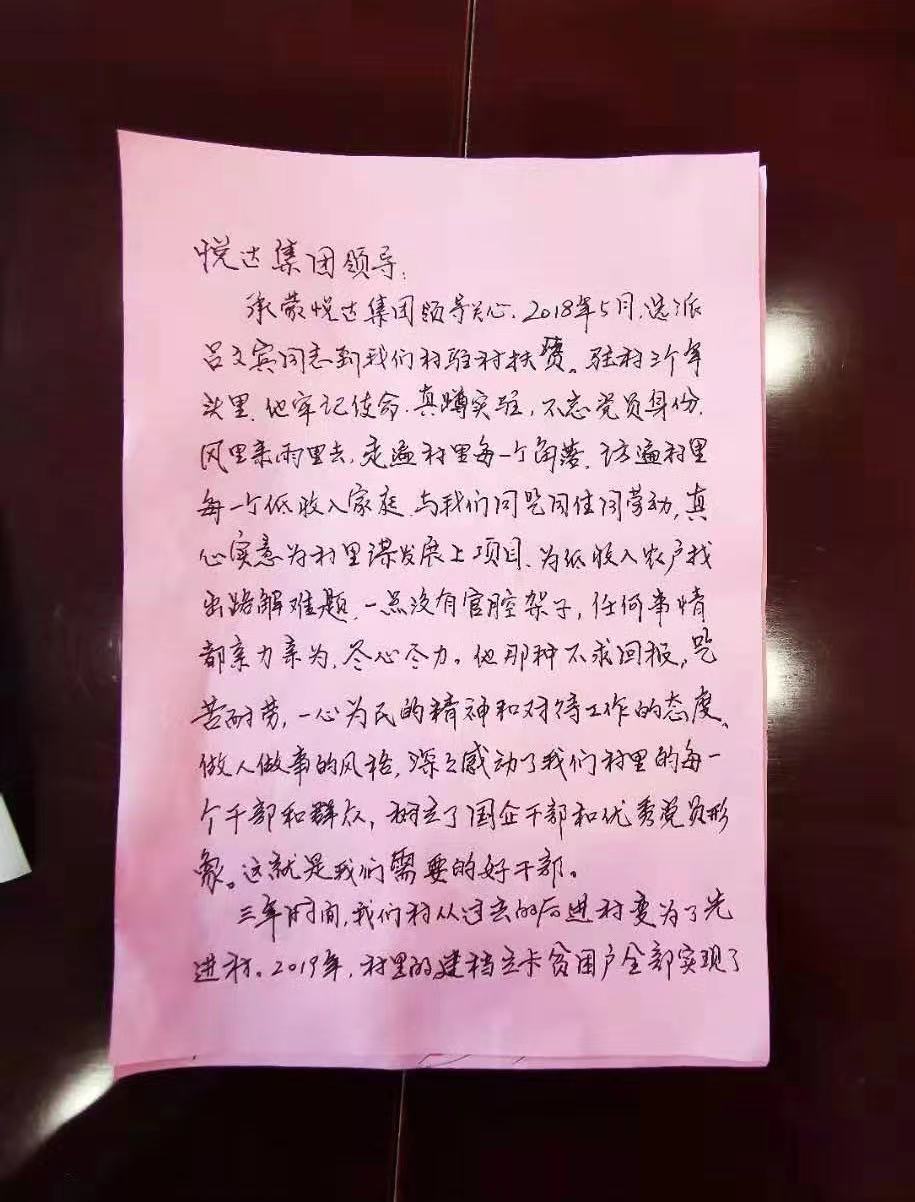 悦达集团领导:
承蒙悦达集团领导关心,2018年5月,选派
吕文宾同志到我们村驻村扶贫。驻村三个年
头里,他牢记使命,真蹲实驻,不忘党员身份,
风里来雨里去,走遍村里每一个角落,访遍村里
每一个低收入家庭,与我们同吃同住同劳动,真
心实意为村里谋发展上项目、为低收入农户找
出路解难题,一点没有官腔架子,任何事情
都亲力亲为,尽心尽力。他那种不求回报,吃
苦耐劳,一心为民的精神和对待工作的态度、
做人做事的风格,深深感动了我们村里的每一
个干部和群众,树立了国企干部和优秀党员形
象。这就是我们需要的好干部。
三年时间,我们村从过去的后进村变为了先
进村。2019年,村里的建档立卡贫困户全部实现了